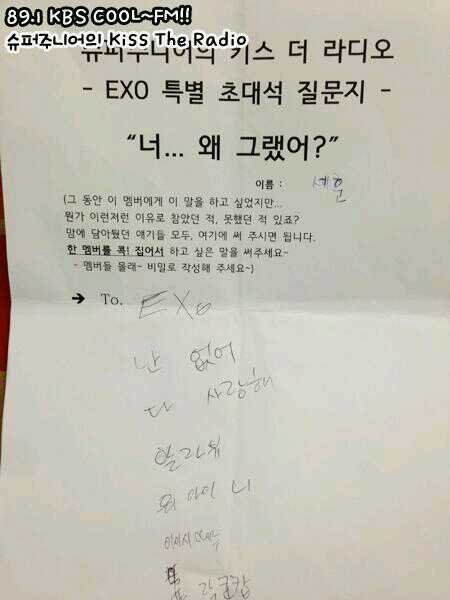 89.1 KBS COOL~FM!!
슈퍼주니어의 Kiss The Radio
슈퍼주니어의 키스 더 라디오
- EXO 특별 초대석 질문지 -
“너... 왜 그랬어?”
이름 : 세훈
(그 동안 이 멤버에게 이 말을 하고 싶었지만...
뭔가 이런저런 이유로 참았던 적, 못했던 적 있죠?
맘에 담아뒀던 얘기들 모두, 여기에 써 주시면 됩니다.
한 멤버를 콕! 집어서 하고 싶은 말을 써주세요~
- 멤버들 몰래~ 비밀로 작성해 주세요~)
➔ To. EXO
난 없어
다 사랑해
알라뷰
워 아이 니